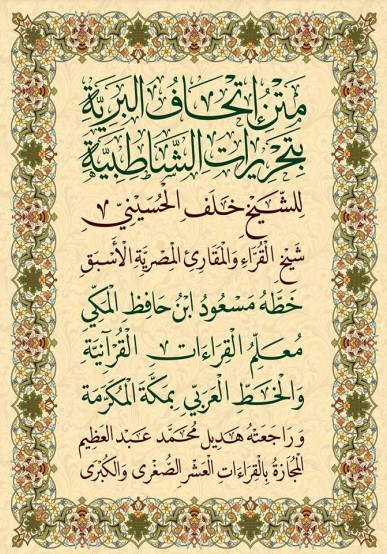 مَتْنُ إِتْحَافُ البَرِيَّةِ
بِتَحْرِيرَاتِ الشَّاطِبِيَّةِ
لِلشَّيْخِ خَلَفِ الْحُسَيْنِيِّ
شَيْخِ الْقُرَّاءِ وَالْمَقَارِئِ الْمِصْرِيَّةِ الْأَسْبَقِ
خَطَّهُ مَسْعُودُ ابْنُ حَافِظِ الْمَكِّي
مُعَلِّمُ الْقِرَاءَاتِ الْقُرْآنِيَّةِ
وَالْخَطِّ الْعَرَبِيِّ بِمَكَّةَ الْمُكَرَّمَةِ
وَرَاجَعَتْهُ هَدِيل مُحَمَّد عَبْدُ الْعَظِيم
الْمُجَازَةُ بِالْقِرَاءَاتِ الْعَشْرِ الصُّغْرَى وَالْكُبْرَى